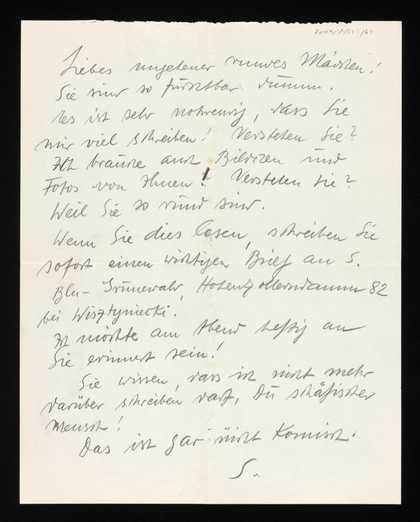 Liebes ungeheuer rundes Mädchen!
Sie sind so furchtbar dumm.
Es ist sehr notwendig, dass Sie
mir viel schreiben! Verstehen Sie?
Ich brauche auch Bildchen und
Fotos von Ihnen! Verstehen Sie?
Weil Sie so rund sind.
Wenn Sie dies lesen, schreiben Sie
sofort einen wichtigen Brief an S.
Bln-Grunewald, Hohenzollerndamm 82
bei Wisztyniecki.
Ich möchte am Abend heftig an
Sie erinnert sein!
Sie wissen, dass ich nicht mehr
darüber schreiben darf, Du schäfischer
Mensch!
Das ist gar nicht komisch.
S.